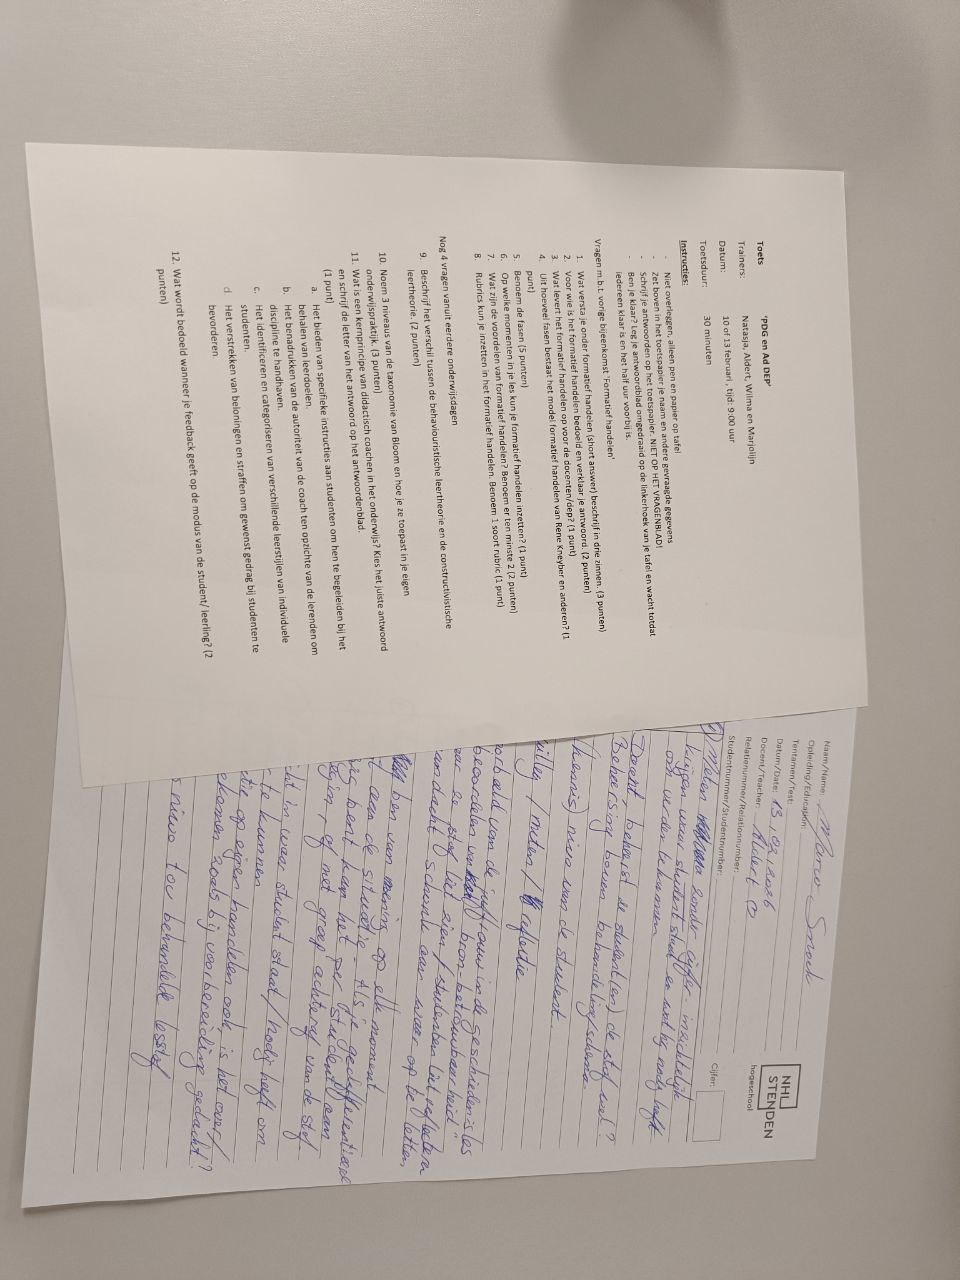 Toets 'PDG en Ad DEP'
Trainers: Natasja, Aldert, Wilma en Marjolijn
Datum: 10 of 13 februari, tijd: 9.00 uur
Toetsduur: 30 minuten
Instructies:
- Niet overleggen, alleen pen en papier op tafel
- Zet boven in het toetspapier je naam en andere gevraagde gegevens
- Schrijf je antwoorden op het toetspapier. NIET OP HET VRAGENBLAD!
- Ben je klaar? Leg je antwoordblad omgedraaid op de linkerhoek van je tafel en wacht totdat
iedereen klaar is en het half uur voorbij is.
Vragen m.b.t. vorige bijeenkomst 'Formatief handelen'
1. Wat versta je onder formatief handelen (short answer) beschrijf in drie zinnen. (3 punten)
2. Voor wie is het formatief handelen bedoeld en verklaar je antwoord. (2 punten)
3. Wat levert het formatief handelen op voor de docenten/dep? (1 punt)
4. Uit hoeveel fasen bestaat het model formatief handelen van Rene Kneyber en anderen? (1
punt)
5. Benoem de fasen (5 punten)
6. Op welke momenten in je les kun je formatief handelen inzetten? (1 punt)
7. Wat zijn de voordelen van formatief handelen? Benoem er ten minste 2 (2 punten)
8. Rubrics kun je inzetten in het formatief handelen. Benoem 1 soort rubric (1 punt)
Nog 4 vragen vanuit eerdere onderwijsdagen
9. Beschrijf het verschil tussen de behaviouristische leertheorie en de constructivistische
leertheorie. (2 punten)
10. Noem 3 niveaus van de taxonomie van Bloom en hoe je ze toepast in je eigen
onderwijspraktijk. (3 punten)
11. Wat is een kernprincipe van didactisch coachen in het onderwijs? Kies het juiste antwoord
en schrijf de letter van het antwoord op het antwoordenblad.
(1 punt)
a. Het bieden van specifieke instructies aan studenten om hen te begeleiden bij het
behalen van leerdoelen.
b. Het benadrukken van de autoriteit van de coach ten opzichte van de lerenden om
discipline te handhaven.
c. Het identificeren en categoriseren van verschillende leerstijlen van individuele
studenten.
d. Het verstrekken van beloningen en straffen om gewenst gedrag bij studenten te
bevorderen.
12. Wat wordt bedoeld wanneer je feedback geeft op de modus van de student/ leerling? (2
punten)
Naam/Name:
Opleiding/Education:
Tentamen/Test:
Datum/Date: 13.02.2026
Docent/Teacher: Aldert
Relatienummer/Relationnumber:
Studentnummer/Studentnumber:
NHL
STENDEN
hogeschool
Cijfer:
Meten zonder cijfer. inzichtelijk
krijgen waar student staat en wat hij nodig heeft
om verder te kunnen
Docent, beheerst de student(en) de stof wel?
niveau van de student.
meten / reflectie
van de juffrouw in de geschiedenisles
beoordelen van bron betrouwbaarheid"
de stof liet zien / studenten liet reflecteren
aandacht schonk aan waar op te letten,
ben van mening op elk moment
aan de situatie. Als je
bent kan het per student aan
of met groep achteraf van de stof
in waar student staat / nodig heeft om
te kunnen
op eigen handelen ook, is het over/
komen zoals bij voorbereiding gedacht?
niveau tov behandelde lesstof